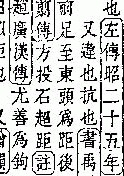 也左傳昭二十五年
又違也抗也書禹
前足至東頭爲距後
翦傳方投石超距註
趙廣漢傳尤善爲鉤